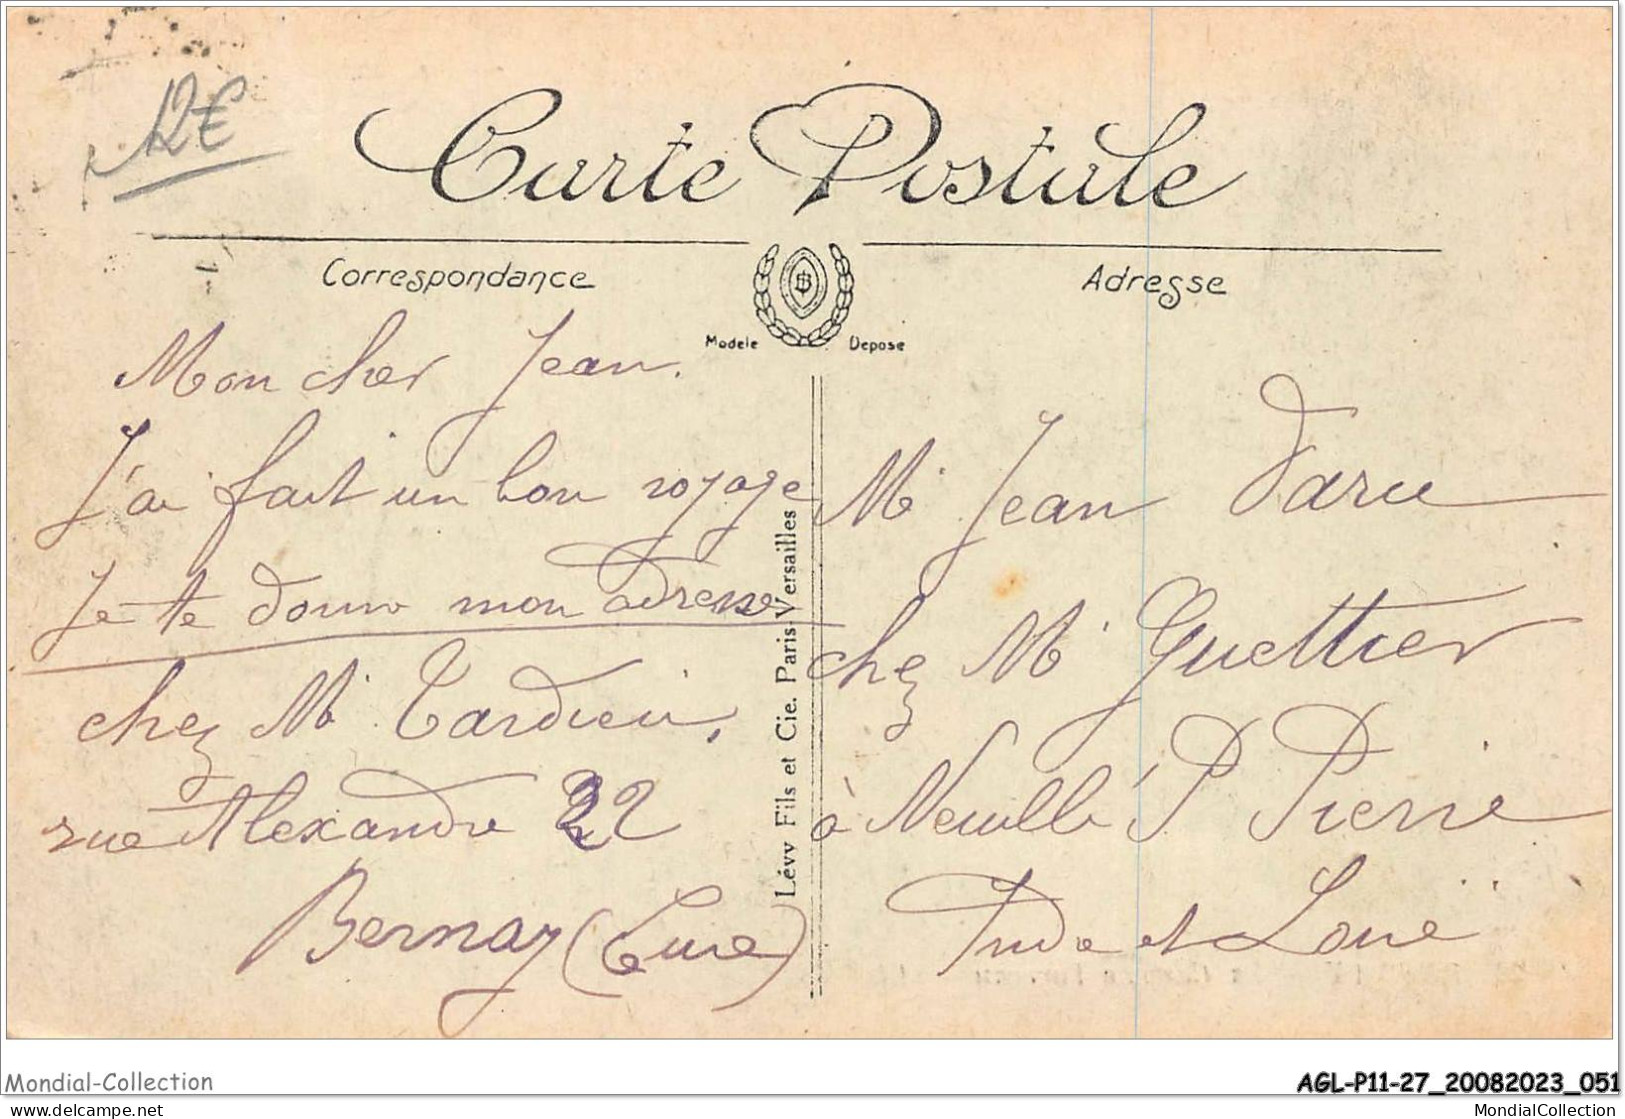 12€
Carte Postale
Correspondance
Adresse
Modele Depose
Mon cher Jean.
J'ai fait un bon voyage
Je te donne mon adresse
chez Mr Tardieu,
rue Alexandre 22
Bernay (Eure)
Lévy Fils et Cie. Paris-Versailles
Mr Jean Daru
chez Mr Guettier
à Neuillé P Pierre
Indre et Loire
Mondial-Collection
AGL-P11-27_20082023_051
www.delcampe.net
MondialCollection